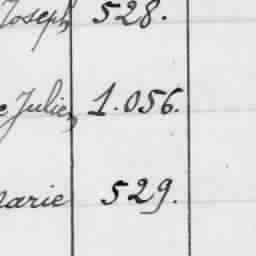 Joseph 528.
Julie, 1.056.
Marie 529.